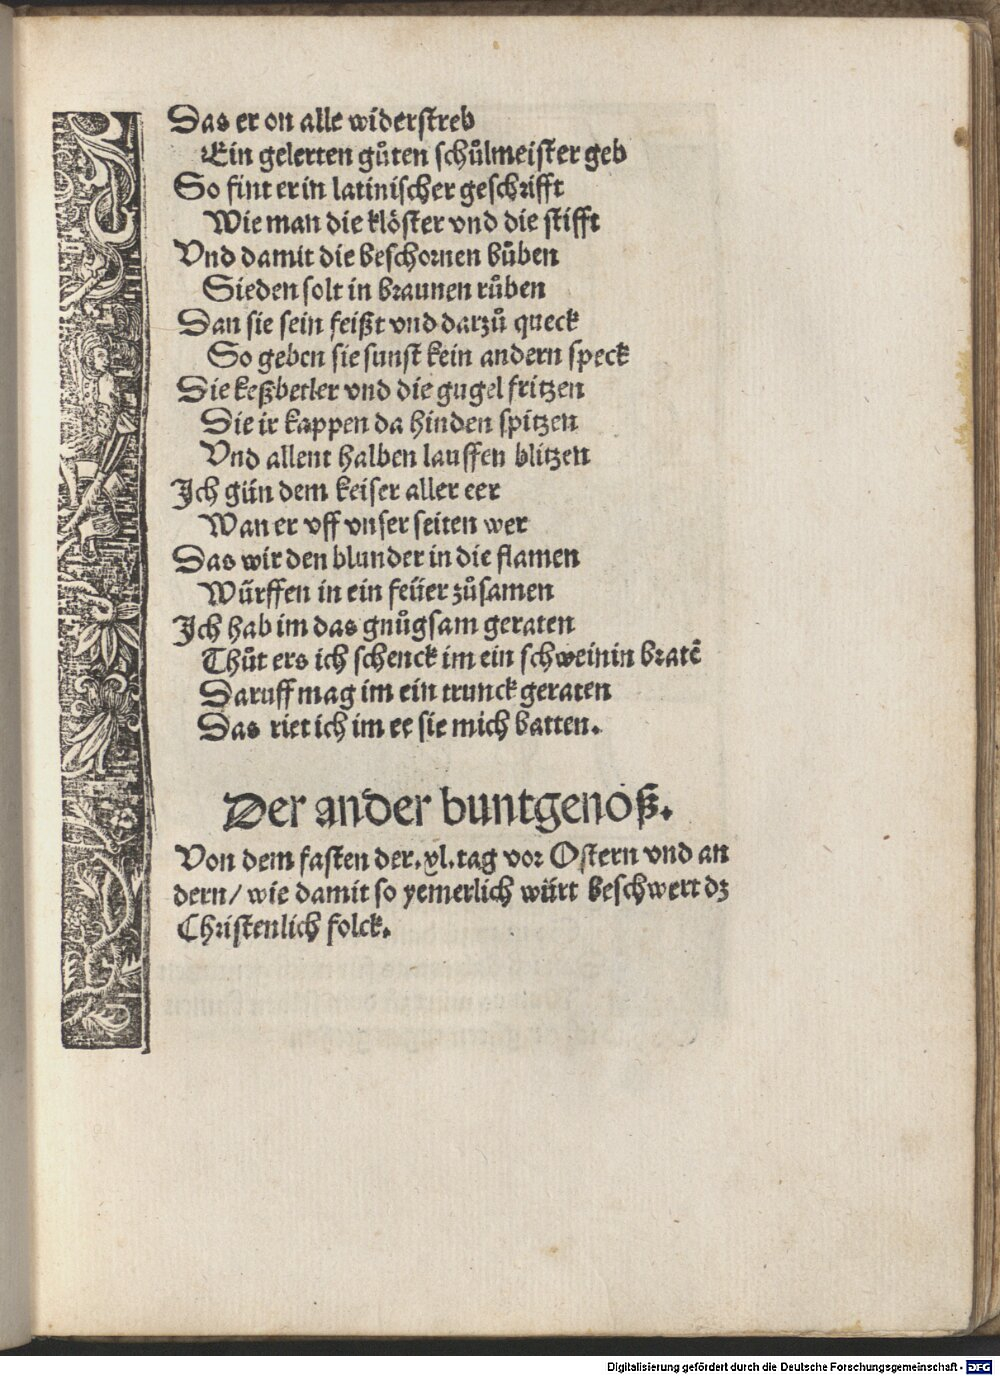 Das er on alle widerstreb
Ein gelerten gůten schůlmeister geb
So fint er in latinischer geschrifft
Wie man die klöster vnd die stifft
Vnd damit die beschornen bůben
Sieden solt in braunen růben
Dan sie sein feißt vnd darzů queck
So geben sie sunst kein andern speck
Die keßbetler vnd die gugel fritzen
Die ir kappen da hinden spitzen
Vnd allent halben lauffen blitzen
Ich gün dem keiser aller eer
Wan er vff vnser seiten wer
Das wir den blunder in die flamen
Würffen in ein feüer zůsamen
Ich hab im das gnůgsam geraten
Thůt ers ich schenck im ein schweinin bratē
Daruff mag im ein trunck geraten
Das riet ich im ee sie mich batten.
Der ander buntgenoß.
Von dem fasten der .xl. tag vor Ostern vnd an
dern/ wie damit so yemerlich würt beschwert dz
Christenlich folck.
Digitalisierung gefördert durch die Deutsche Forschungsgemeinschaft - DFG